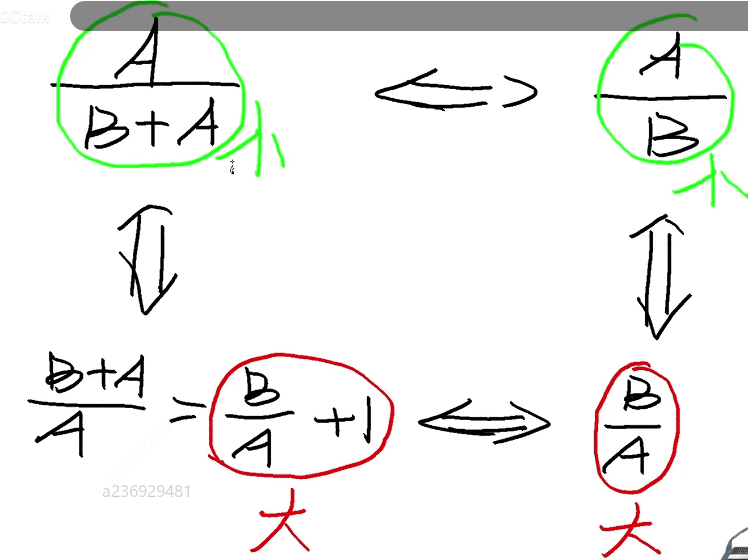 CCtalk
A/(B+A) ⇔ A/B
小 小
⇕ ⇕
(B+A)/A = B/A +1 ⇔ B/A
a236929481
大 大